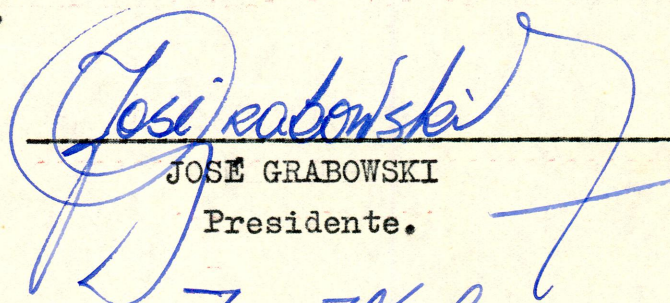 José Grabowski
JOSÉ GRABOWSKI
Presidente.